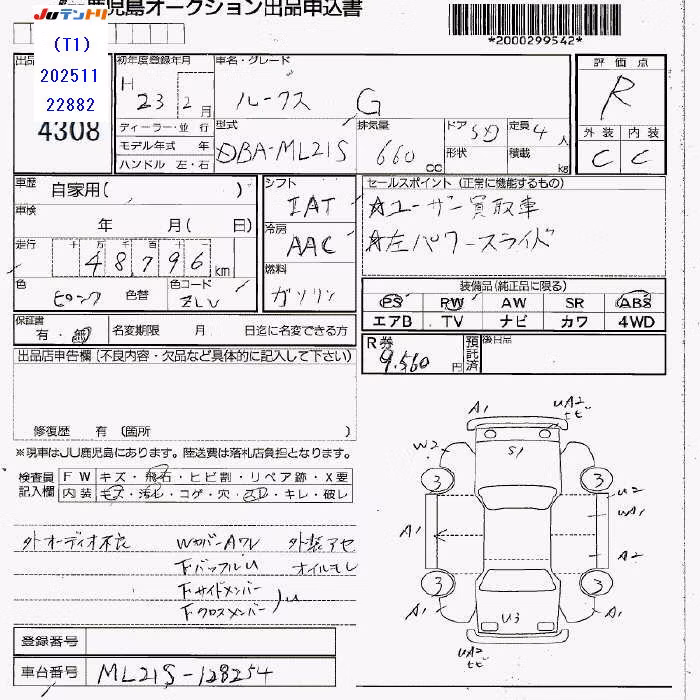 JUテントリ
鹿児島オークション出品申込書
*2000299542*
(T1)
202511
22882
4308
初年度登録年月
H 23 2月
車名・グレード
ルークス G
評価点
R
外装 内装
C C
ディーラー・並行
モデル年式 年
ハンドル 左・右
型式
DBA-ML21S
排気量
660 cc
ドア 5D
形状
定員 4人
積載 kg
車歴 自家用( )
車検 年 月( 日)
走行 十万千百十
48,796 km
色 ピンク 色替
色コード ZLV
シフト
IAT
冷房
AAC
燃料
ガソリン
セールスポイント(正常に機能するもの)
☆ユーザー買取車
☆左パワースライド
装備品(純正品に限る)
PS RW AW SR ABS
エアB TV ナビ カワ 4WD
保証書
有・無
名変期限 月 日迄に名変できる方
R券 9,560円
預託済
後日品
出品店申告欄(不良内容・欠品など具体的に記入して下さい)
修復歴 有(箇所 )
※現車はJU鹿児島にあります。陸送費は落札店負担となります。
検査員記入欄
FW キズ・飛石・ヒビ割・リペア跡・X要
内装 キズ・汚レ・コゲ・穴・スレ・キレ・破レ
外オーディオ不良 WカバーAワレ 外装アセ
下バッフルU オイルモレ
下サイドメンバー
下クロスメンバー )U
登録番号
車台番号 ML21S-128254
A1
UA2
ヒビ
W2
S1
3
3
U2
WA1
A1
A2
3
3
A1
A1
U3
UA2
ヒビ